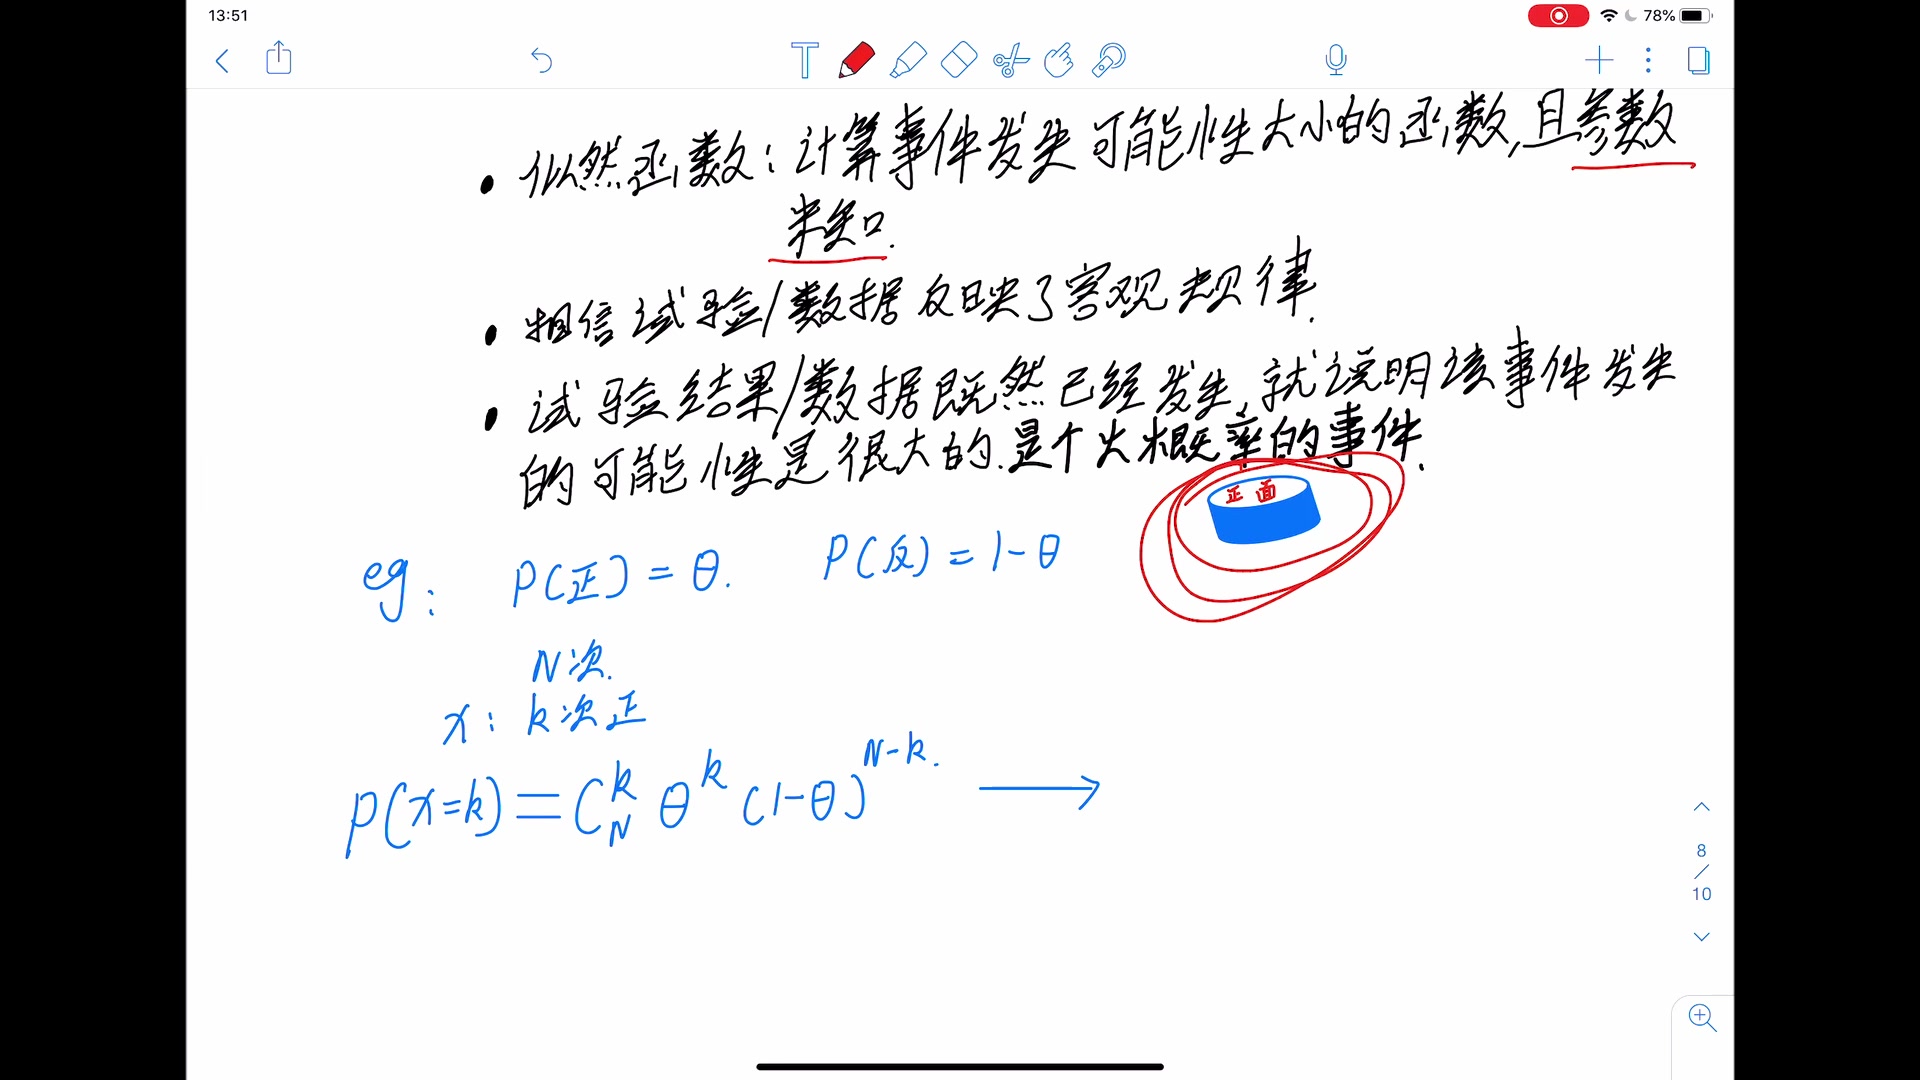 13:51
78%
• 似然函数:计算事件发生可能性大小的函数,且参数
未知.
• 相信试验/数据反映了客观规律.
• 试验结果/数据既然已经发生,就说明该事件发生
的可能性是很大的.是个大概率的事件.
正面
eg: P(正)=θ. P(反)=1-θ
N次.
x: k次正
P(x=k)=C_N^k θ^k (1-θ)^{N-k}. ⟶
8
/
10